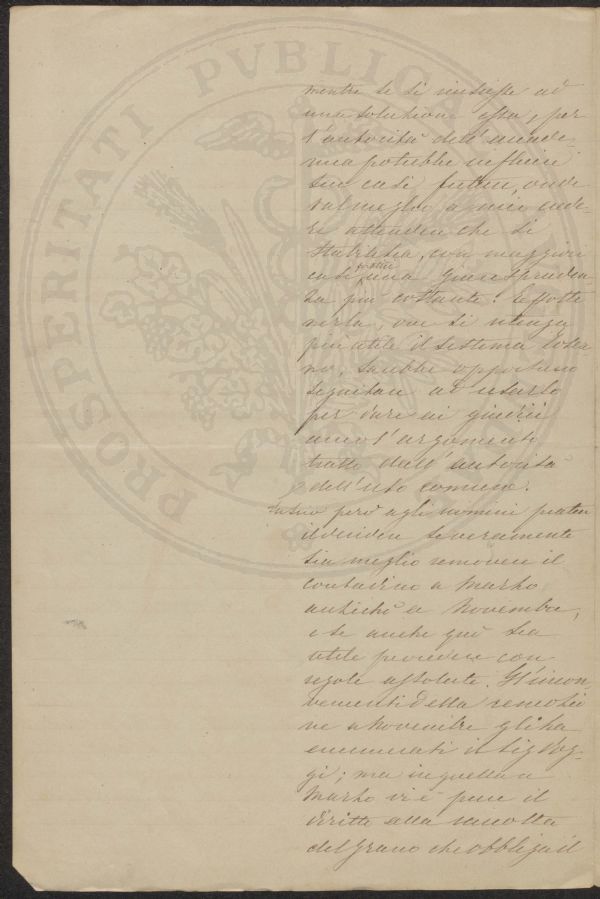 PROSPERITATI PVBLICAE
mentre se si insiste ad
una soluzione essa, per
l'autorità dell'accade-
mia potrebbe influire
sui casi futuri, onde
val meglio a mio vede-
re attender che si
stabilisca, con maggiori
casi pratici una giurispruden
za più costante. E sotto
, ove si ritenga
più utile il sistema
no, sarebbe opportuno
seguitare ad usarlo
per dare ai giudici
anco l'argomento
tratto dall'autorità
dell'uso comune.
Lascio però agli uomini pratici
il decidere se veramente
sia meglio removere il
contadino a Marzo
anzichè a Novembre,
e se anche quì sia
utile procedere con
regole assolute. Gl'incon
venienti della remozio
ne a Novembre gli ha
enumerati il Sig
gi; ma in quella a
Marzo vi è pure il
diritto alla raccolta
del grano che obbliga il